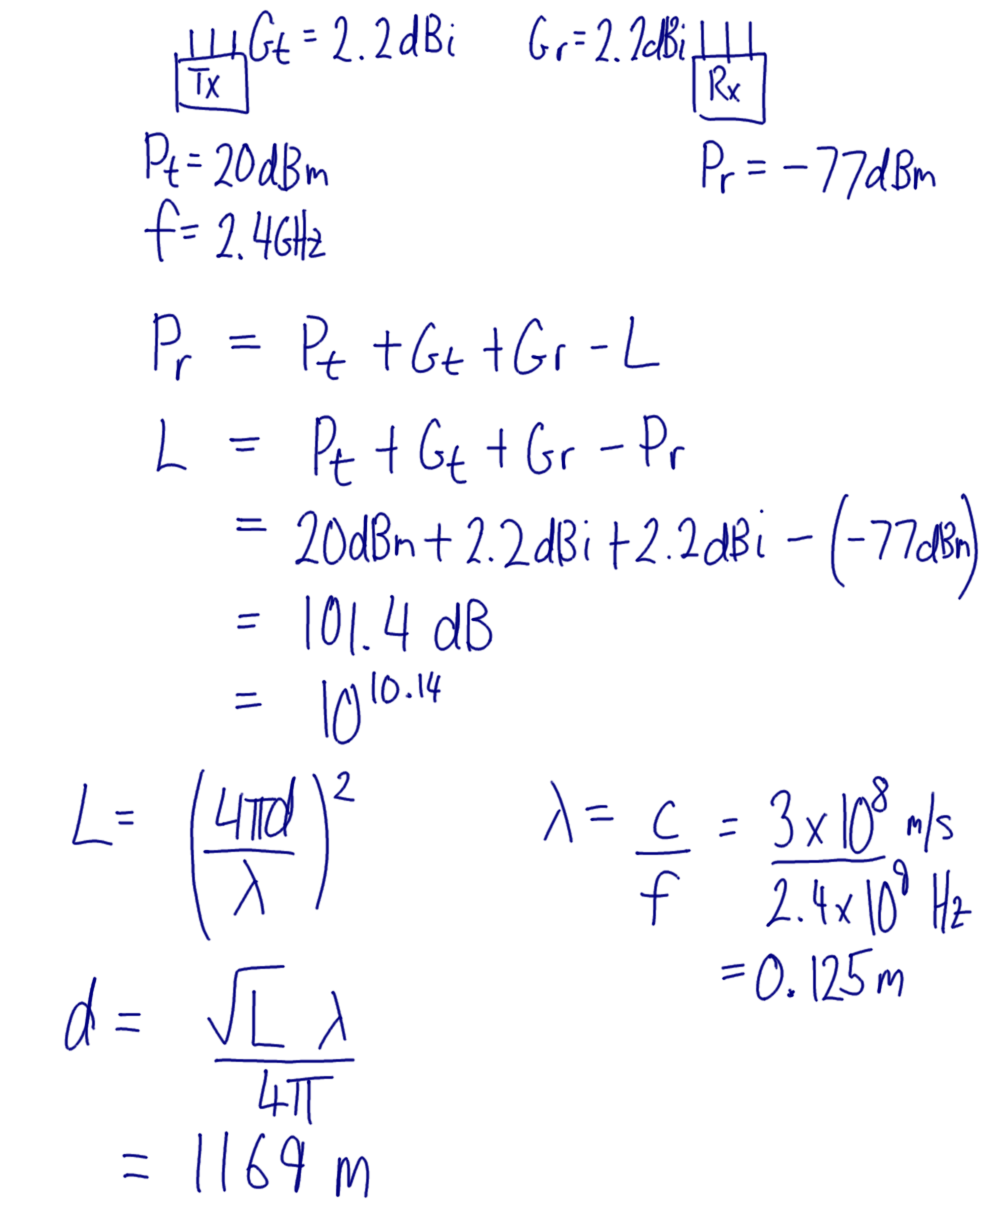 Gt = 2.2dBi Gr = 2.2dBi
Tx Rx
Pt = 20dBm Pr = -77dBm
f = 2.4GHz
Pr = Pt + Gt + Gr - L
L = Pt + Gt + Gr - Pr
= 20dBm + 2.2dBi + 2.2dBi - (-77dBm)
= 101.4 dB
= 10^10.14
L = (4πd/λ)² λ = c/f = 3x10⁸ m/s / 2.4x10⁹ Hz
= 0.125m
d = √L λ / 4π
= 1169 m